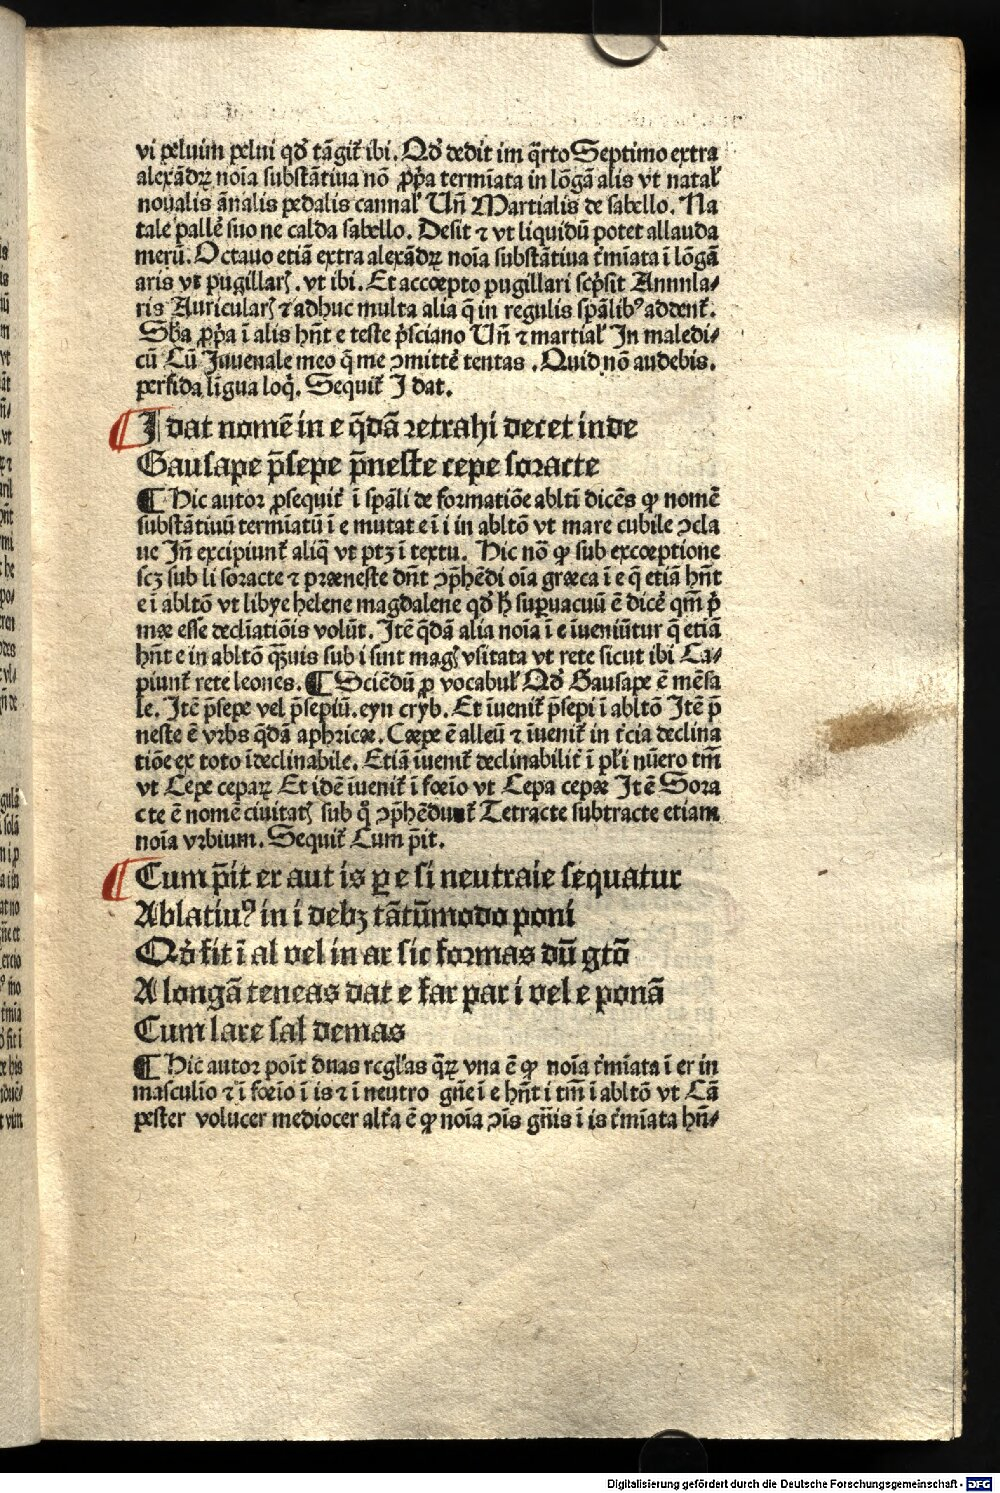 vi peluim pelui qd̄ tāgit᷑ ibi. Qd̄ dedit im q̄rto Septimo extra
alexādrꝝ noīa substātiua nō ꝓp̄a termīata in lōgā alis vt natal᷑
noualis ānalis pedalis cannal᷑ Un̄ Martialis de sabello. Na
tale pallē suo ne calda sabello. Desit ⁊ vt liquidū potet allauda
merū. Octauo etiā extra alexādrꝝ noīa substātiua t᷑mīata ī lōgā
aris vt pugillarꝭ. vt ibi. Et accœpto pugillari scp̄sit Annula⸗
ris Auricularꝭ ⁊ adhuc multa alia q̄ in regulis spālibꝰ addent᷑.
Sb̄a ꝓp̄a ī alis hn̄t e teste p̄sciano Un̄ ⁊ martial᷑ In maledi⸗
cū Cū Juuenale meo q̄ me ↄmittē tentas. Quid nō audebis.
perfida līgua loq̄. Sequit᷑ I dat.
I dat nomē in e q̄dā retrahi decet inde
Gausape p̄sepe p̄neste cepe soracte
¶ Hic autor ꝓsequit᷑ ī spāli de formatiōe abltī dicēs ꝙ nomē
substātiuū termīatū ī e mutat e ī i in abltō vt mare cubile ↄcla
ue Jn̄ excipiunt᷑ aliq̄ vt ptꝫ ī textu. Hic nō ꝙ sub excœptione
scꝫ sub li soracte ⁊ præneste dn̄t ↄp̄hēdi oīa græca ī e q̄ etiā hn̄t
e ī abltō vt libye helene magdalene qd̄ h̄ suꝑuacuū ē dicē qm̄ p̄
mæ esse declīatiōis volūt. Itē q̄dā alia noīa ī e īueniūtur q̄ etiā
hn̄t e in abltō q̄ꝫuis sub i sint magꝭ vsitata vt rete sicut ibi Ca⸗
piunt᷑ rete leones. ¶ Sciēdū ꝓ vocabul᷑ Qd̄ Gausape ē mēsa
le. Itē p̄sepe vel p̄sepiū. eyn cryb. Et īuenit᷑ p̄sepi ī abltō Itē p̄
neste ē vrbs q̄dā aphricæ. Cæpe ē alleū ⁊ īuenit᷑ in t᷑cia declina
tiōe ex toto īdeclinabile. Etiā īuenit᷑ declinabilit᷑ ī pl᷑i nūero tm̄
vt Cepe ceparꝝ Et idē īuenit᷑ ī foeīo vt Cepa cepæ Itē Sora
cte ē nomē ciuitatꝭ sub q̊ ↄp̄hēdunt᷑ Tetracte subtracte etiam
noīa vrbium. Sequit᷑ Cum p̄it.
Cum p̄it er aut is ꝑ e si neutraie sequatur
Ablatiuꝰ in i debꝫ tātūmodo poni
Qd̄ fit ī al vel in ar sic formas dū gtō
A longā teneas dat e far par i vel e ponā
Cum lare sal demas
¶ Hic autor poīt duas regl᷑as q̄rꝝ vna ē ꝙ noīa t᷑mīata ī er in
masculīo ⁊ ī foeīo ī is ⁊ ī neutro gn̄e ī e hn̄t i tm̄ ī abltō vt Cā
pester volucer mediocer alt᷑a ē ꝙ noīa ↄīs gn̄is ī is t᷑mīata hn̄⸗
Digitalisierung gefördert durch die Deutsche Forschungsgemeinschaft - DFG